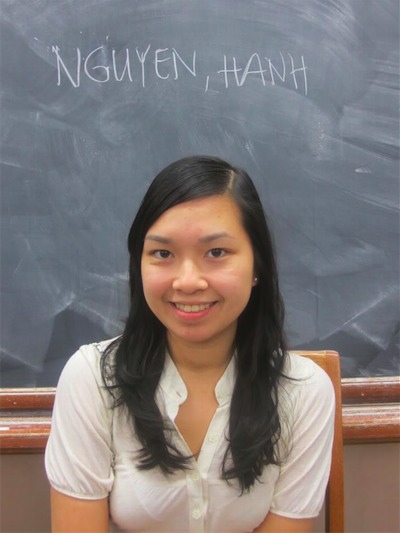 NGUYEN, HANH